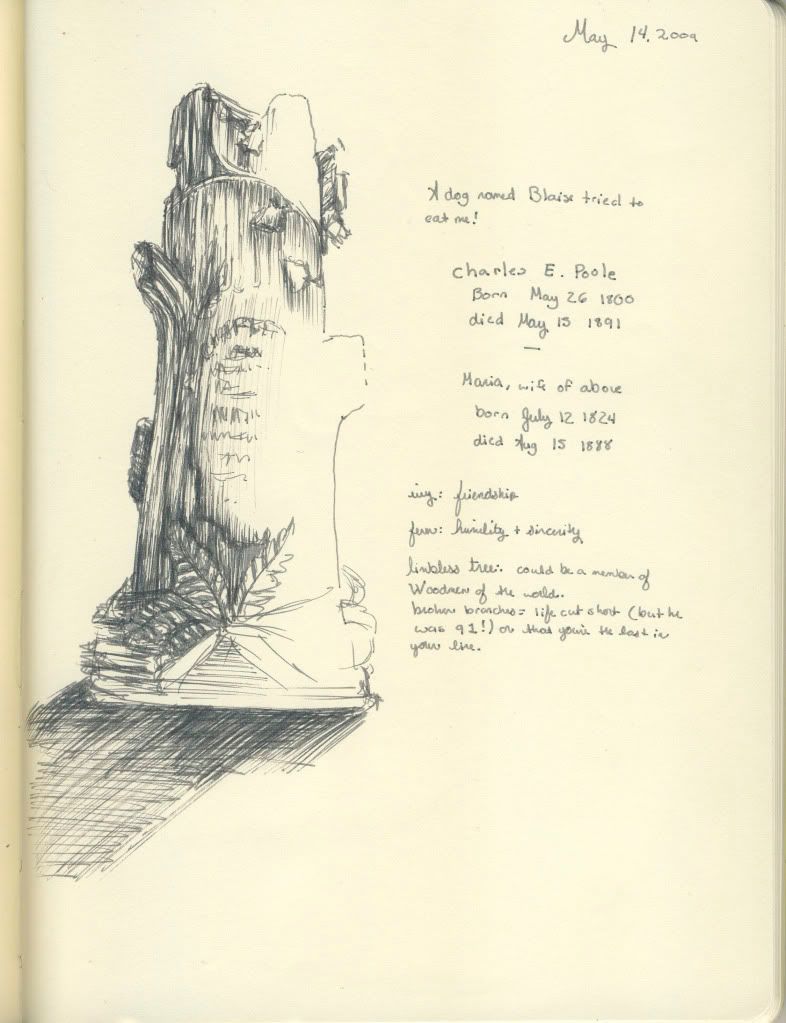 May 14, 2009
A dog named Blaise tried to
eat me!
Charles E. Poole
Born May 26 1800
died May 15 1891
—
Maria, wife of above
born July 12 1824
died Aug 15 1888
ivy: friendship
fern: humility + sincerity
limbless tree: could be a member of
Woodmen of the world.
broken branches = life cut short (but he
was 91!) or that you're the last in
your line.